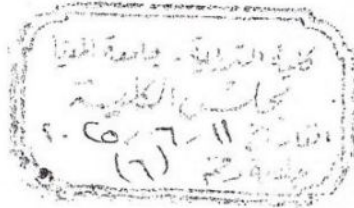 كلية التربية - جامعة المنيا
مجلس الكلية
التاريخ ١١ - ٦ - ٢٠٢٥
جلسة رقم (٦)